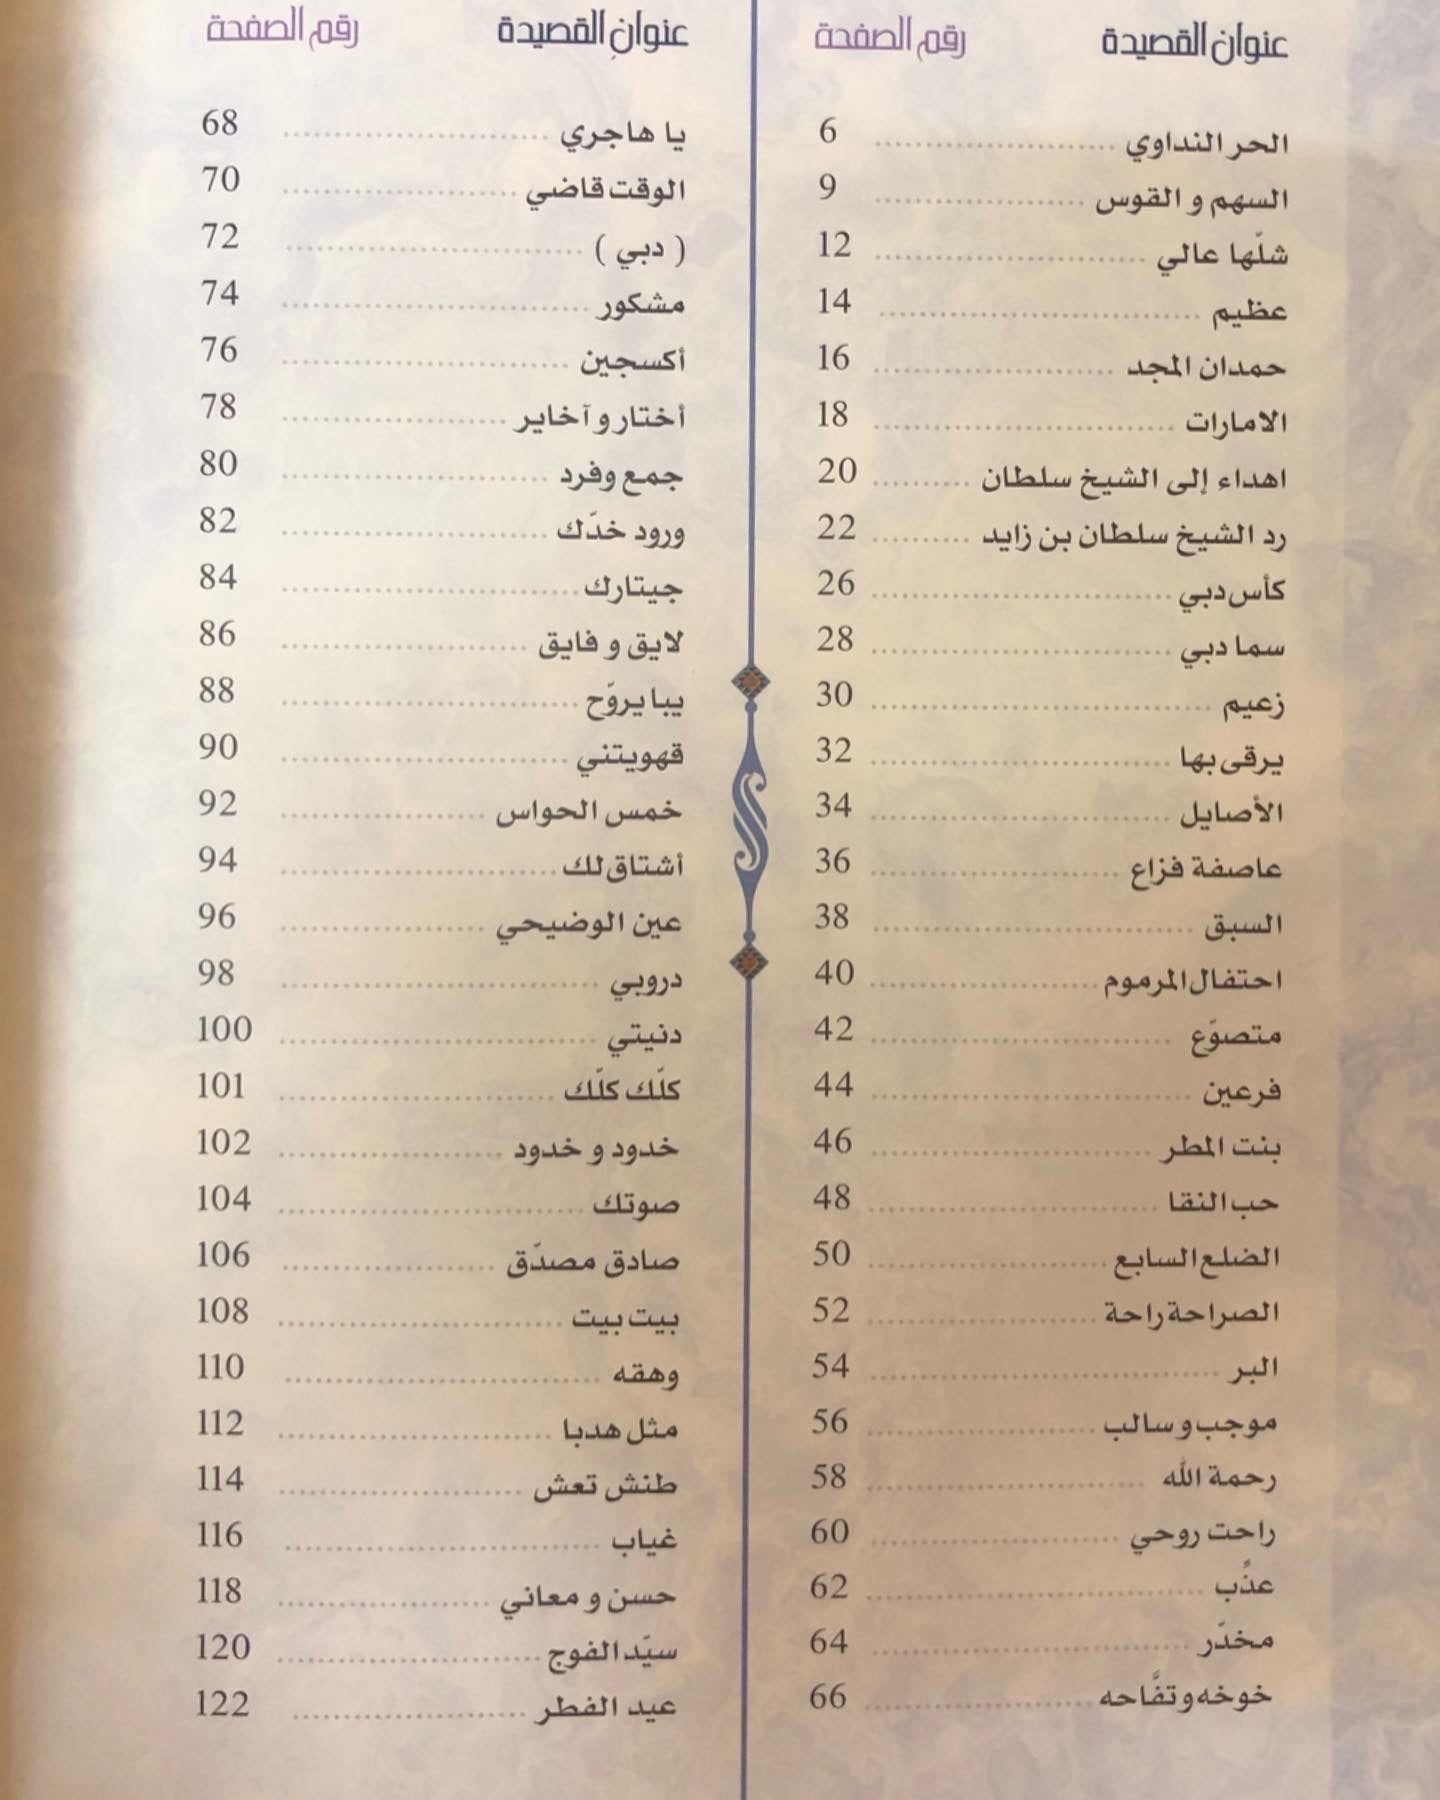 عنوان القصيدة رقم الصفحة
الحر النداوي 6
السهم و القوس 9
شلّها عالي 12
عظيم 14
حمدان المجد 16
الامارات 18
اهداء إلى الشيخ سلطان 20
رد الشيخ سلطان بن زايد 22
كأس دبي 26
سما دبي 28
زعيم 30
يرقى بها 32
الأصايل 34
عاصفة فزاع 36
السبق 38
احتفال المرموم 40
متصوّع 42
فرعين 44
بنت المطر 46
حب النقا 48
الضلع السابع 50
الصراحة راحة 52
البر 54
موجب و سالب 56
رحمة الله 58
راحت روحي 60
عذّب 62
مخدّر 64
خوخه و تفّاحه 66
عنوان القصيدة رقم الصفحة
يا هاجري 68
الوقت قاضي 70
( دبي ) 72
مشكور 74
أكسجين 76
أختار و آخاير 78
جمع وفرد 80
ورود خدّك 82
جيتارك 84
لايق و فايق 86
يبا يروّح 88
قهويتني 90
خمس الحواس 92
أشتاق لك 94
عين الوضيحي 96
دروبي 98
دنيتي 100
كلّك كلّك 101
خدود و خدود 102
صوتك 104
صادق مصدّق 106
بيت بيت 108
وهقه 110
مثل هدبا 112
طنش تعش 114
غياب 116
حسن و معاني 118
سيّد الفوج 120
عيد الفطر 122